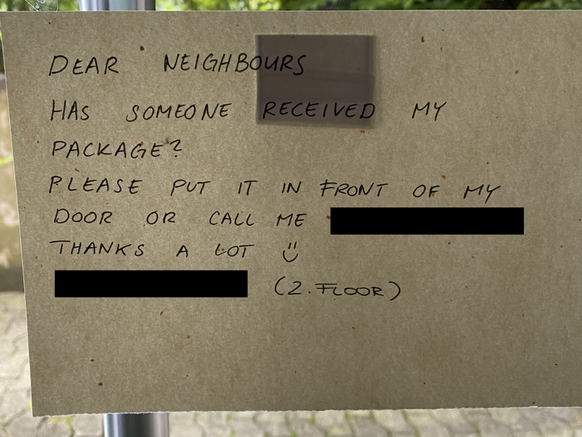 DEAR NEIGHBOURS
HAS SOMEONE RECEIVED MY
PACKAGE?
PLEASE PUT IT IN FRONT OF MY
DOOR OR CALL ME
THANKS A LOT
(2.FLOOR)